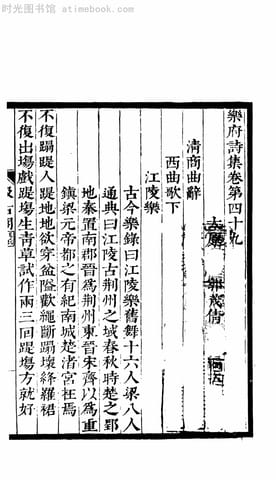 时光图书馆 - atimebook.com
樂府詩集卷第四十九
太原 郭茂倩 編次
清商曲辭
西曲歌下
江陵樂
古今樂錄曰江陵樂舊舞十六人梁八人
通典曰江陵古荊州之域春秋時楚之郢
地秦置南郡晉爲荊州東晉宋齊以爲重
鎮梁元帝都之有紀南城楚渚宮在焉
不復蹋踶人踶地地欲穿盆隘歡繩斷蹋壞絳羅裙
不復出塲戲踶塲生青草試作兩三回踶塲方就好